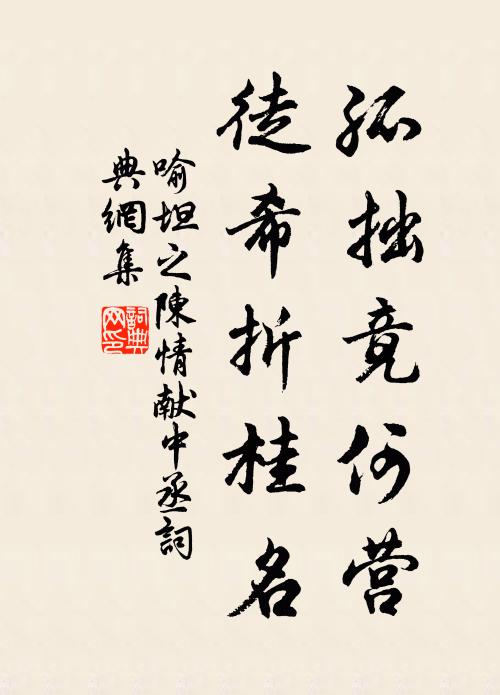 孤拙竟何营
徒希折桂名
喻坦之陳情献中丞詞
典網集
詞典
网印